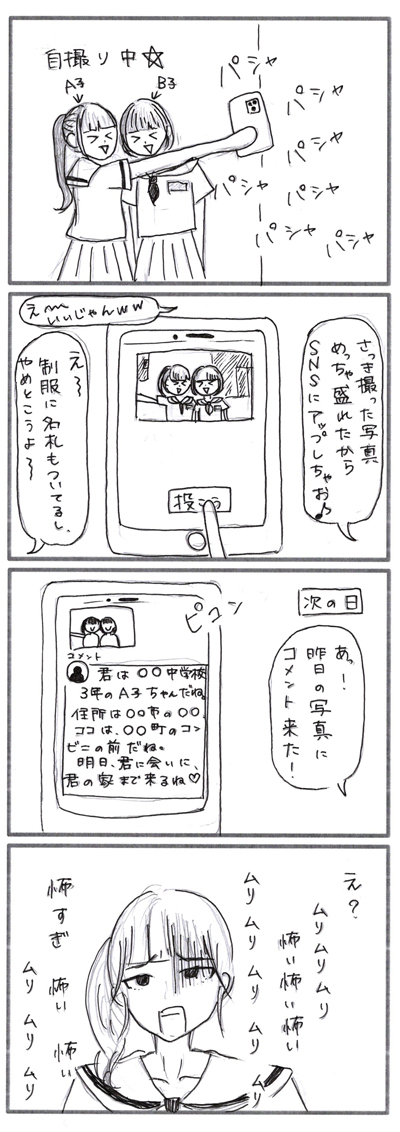 自撮り中☆
A子
B子
パシャ
パシャ
パシャ
パシャ
パシャ
パシャ
パシャ
パシャ
さっき撮った写真
めっちゃ盛れたから
SNSにアップしちゃお♪
え〜
いいじゃんww
え〜
制服に名札もついてるし、
やめとこうよ〜
投こう
次の日
あっ!
昨日の写真に
コメント来た!
ピコン
コメント
君は〇〇中学校
3年のA子ちゃんだね。
住所は〇〇市の〇〇、
ココは、〇〇町のコン
ビニの前だね。
明日、君に会いに、
君の家まで来るね♡
え?
ムリムリムリ
怖い怖い怖い
ムリムリムリムリ
ムリ
怖すぎ
怖い
怖い
ムリムリムリムリ